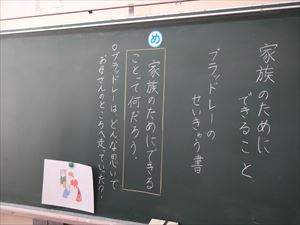 家族のために
できること
ブラッドレーの
せいきゅう書
め
家族のためにできる
ことって何だろう。
○ブラッドレーは、どんな思いで
お母さんのところへ走っていった?